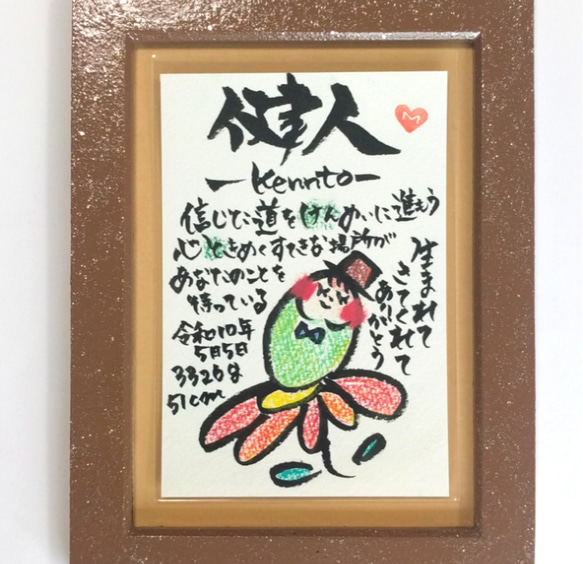 健人
-Kennto-
信じた道をけんめいに進もう
心ときめくすてきな場所が
あなたのことを
待っている
令和10年
5月5日
3326g
51cm
生まれて
きてくれて
ありがとう
M